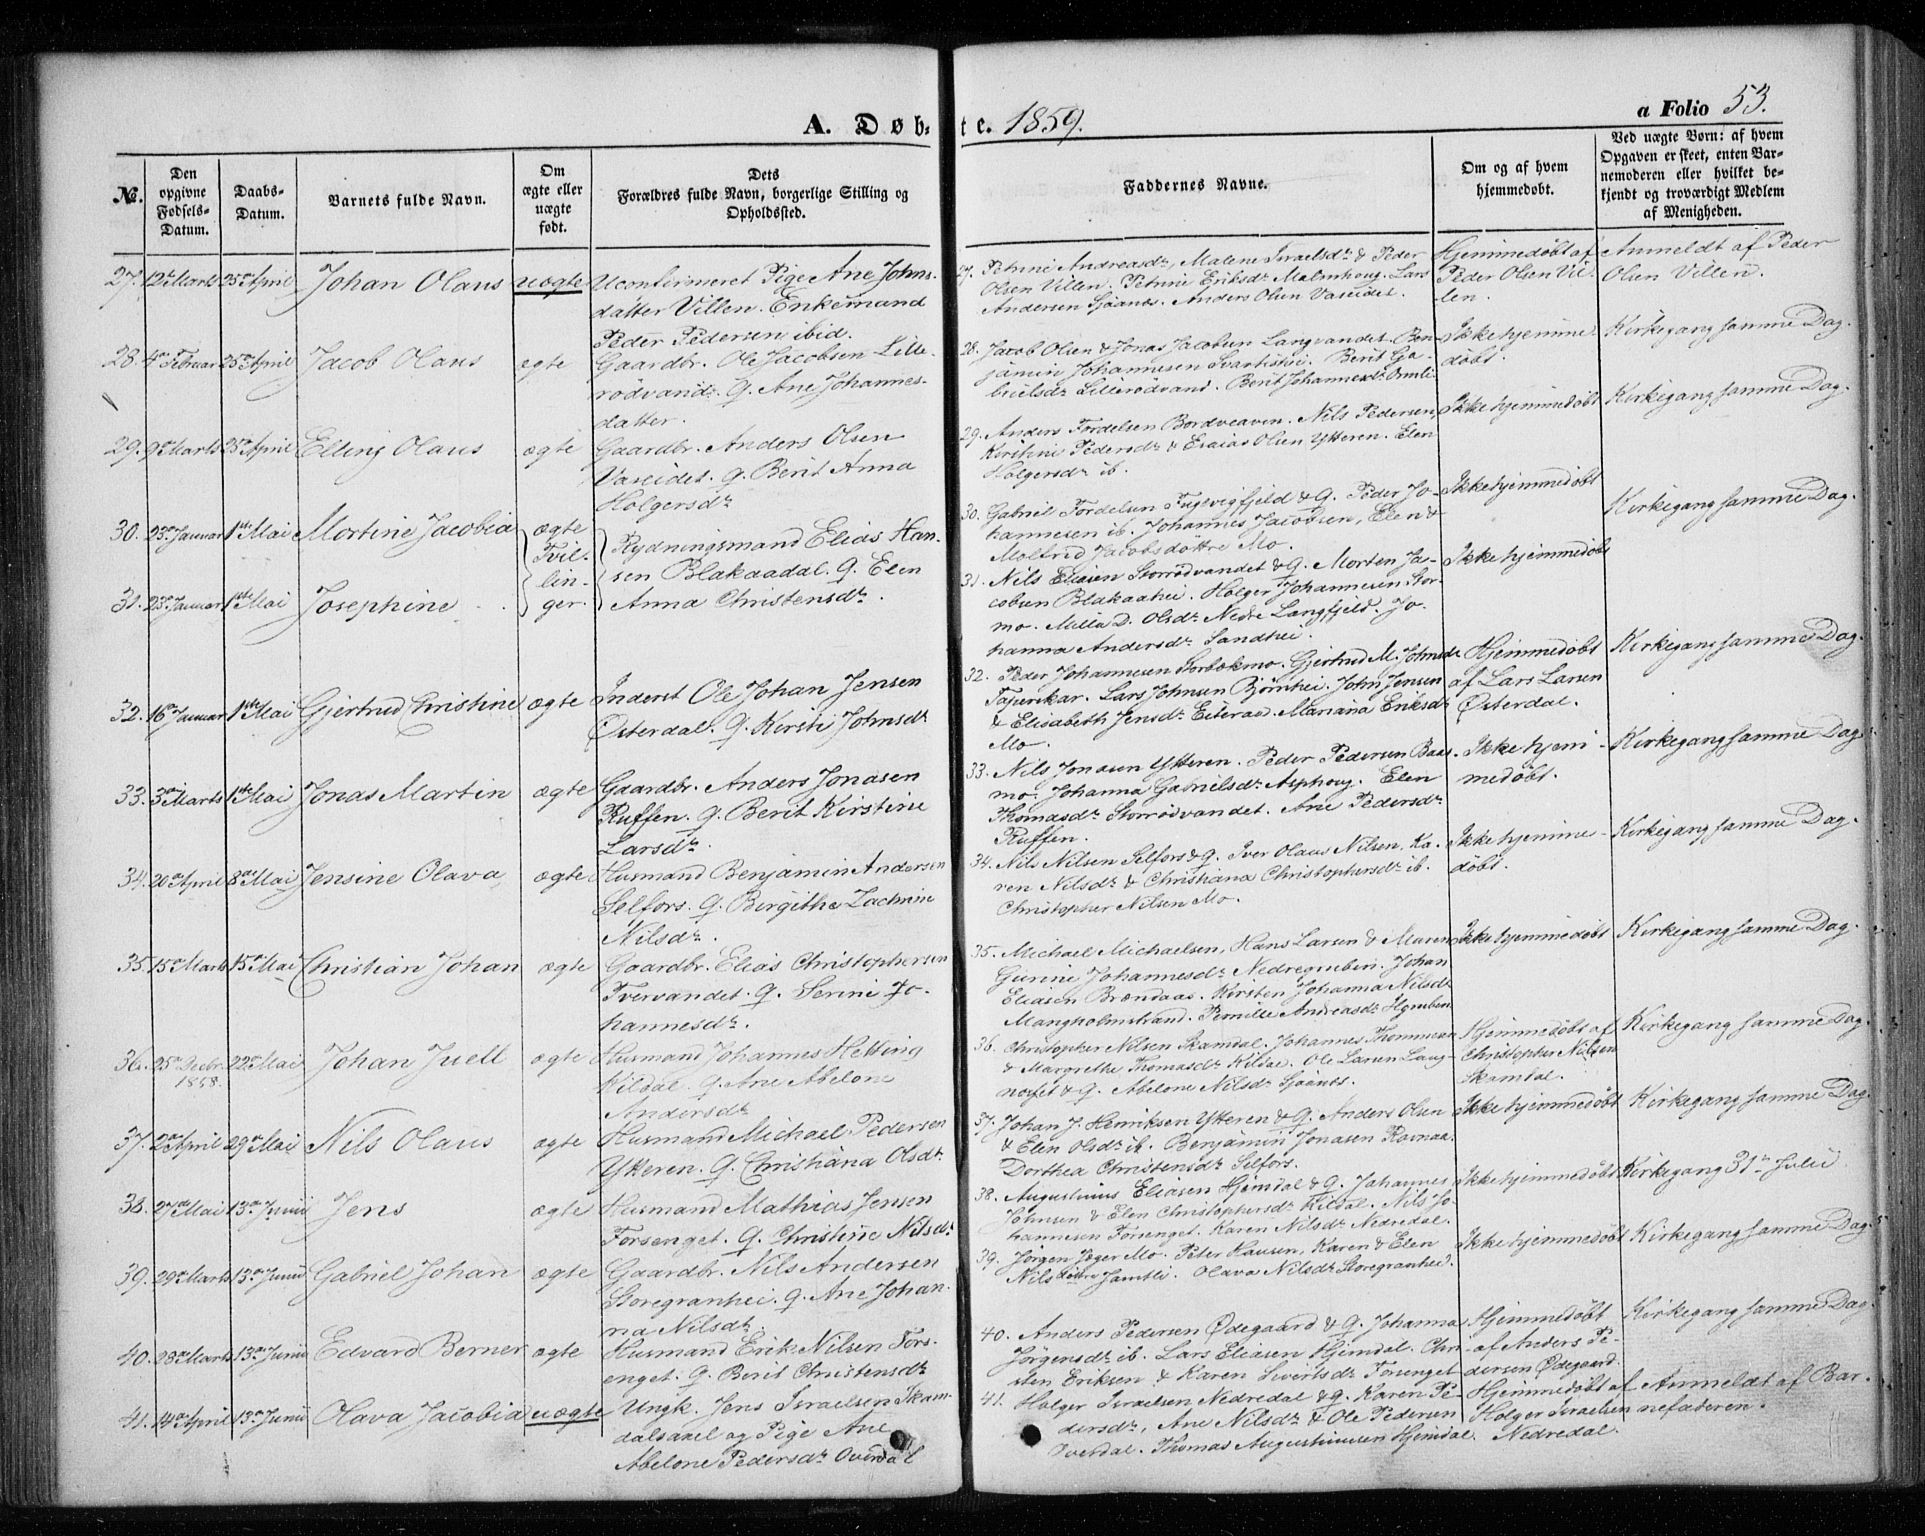 A. Døb-
te. 1859.
a Folio 53.
No.
Den opgivne Fødsels-Datum.
Daabs-Datum.
Barnets fulde Navn.
Om ægte eller uægte født.
Dets Forældres fulde Navn, borgerlige Stilling og Opholdssted.
Faddernes Navne.
Om og af hvem hjemmedøbt.
Ved uægte Børn: af hvem Opgaven er skeet, enten Barnemoderen eller hvilket bekjendt og troværdigt Medlem af Menigheden.
27. 12te Marts 25de April Johan Olaus uægte Uconfirmeret Pige Ane Johns-
datter Villen. Enkemand
Peder Pedersen ibid.
27. Petrine Andreasdr, Malene Israelsdr & Peder
Olsen Villen. Petrine Eriksdr Malmhoug. Lars
Andersen Sjøanæs. Anders Olsen Vaseidet.
Hjemmedøbt af
Peder Olsen Vil-
len.
Anmeldt af Peder
Olsen Villen.
28. 4de Februar 25de April Jacob Olaus ægte Gaardbr. Ole Jacobsen Lille-
rødvand. Q. Ane Johannes-
datter.
28. Jacob Olsen & Jonas Jacobsen Langvandet. Ben-
jamin Johannesen Svartishei. Berit Ga-
brielsdr Lillerødvand. Berit Johannesdr
Ikke hjemme-
døbt.
Kirkegang samme Dag.
29. 9de Marts 25de April Elling Olaus ægte Gaardbr. Anders Olsen
Vaseidet. Q. Berit Anna
Holgersdr
29. Anders Fordelsen Bordveaven. Nils Pedersen,
Kirstine Pedersdr & Esaias Olsen Ytteren. Elen
Holgersdr ib.
Ikke hjemmedøbt
Kirkegang samme Dag.
30. 23de Januar 1ste Mai Mortine Jacobia ægte
Tvil-
lin-
ger.
Rydningsmand Elias Han-
sen Blakaadal. Q. Elen
Anna Christensdr.
30. Gabriel Fordelsen Fuglvigfjeld & Q. Peder Jo-
hannesen ib. Johannes Jacobsen, Elen &
Molfrid Jacobsdøttre Mo.
Ikke hjemmedøbt
Kirkegang samme Dag.
31. 23de Januar 1ste Mai Josephine
31. Nils Eliasen Storrødvandet & Q. Morten Ja-
cobsen Blakaahei. Holger Johannesen Stor-
mo. Milla D. Olsdr Nedre Langfjeld. Jo-
hanna Andersdr Sandhei.
Ikke hjemmedøbt
32. 16de Januar 1ste Mai Gjertrud Christine ægte Inderst Ole Johan Jensen
Østerdal. Q. Kirsti Johnsdr
32. Peder Johannesen Storbækmo. Gjertrud M. Johnsdr
Tajurskar. Lars Johnsen Bjørnhei. John Jensen
& Elisabeth Jensdr Eiteraa. Mariana Eriksdr
Mo.
Hjemmedøbt
af Lars Larsen
Østerdal.
Kirkegang samme Dag.
33. 3die Marts 1ste Mai Jonas Martin ægte Gaardbr. Anders Jonasen
Ruffen. Q. Berit Kirstine
Larsdr.
33. Nils Jonasen Ytteren. Peder Pedersen Baas-
mo. Johanna Gabrielsdr Asphoug. Elen
Thomasdr Storrødvandet. Ane Pedersdr
Ruffen.
Ikke hjem-
medøbt.
Kirkegang samme Dag.
34. 20de April 8de Mai Jensine Olava ægte Husmand Benjamin Andersen
Selfors. Q. Birgithe Zachrine
Nilsdr.
34. Nils Nilsen Selfors & Q. Iver Olaus Nilsen, Ka-
ren Nilsdr & Christiana Christophersdr ib.
Christopher Nilsen Mo.
Ikke hjemme-
døbt.
Kirkegang samme Dag.
35. 15de Marts 15de Mai Christian Johan ægte Gaardbr. Elias Christophersen
Tvervandet. Q. Serine Jo-
hannesdr.
35. Michael Michaelsen, Hans Larsen & Maren
Gurine Johannesdr Nedregruben. Johan
Eliasen Brændaas. Kirsten Johanna Nilsdr
Mangholmstrand. Pernille Andreasdr
Ikke hjemmedøbt
Kirkegang samme Dag.
36. 25de Decbr. 1858. 22de Mai Johan Juell ægte Husmand Johannes Hetting
Kildal. Q. Ane Abelone
Andersdr
36. Christopher Nilsen Skamdal. Johannes Thommesen
& Margrethe Thomasdr Kildal. Ole Larsen Lang-
næset & Q. Abelone Nilsdr Sjøanæs.
Hjemmedøbt af
Christopher Nilsen
Skamdal.
Kirkegang samme Dag.
37. 2den April 29de Mai Nils Olaus ægte Husmand Michael Pedersen
Ytteren. Q. Christiana Olsdr
37. Johan J. Henriksen Ytteren & Q. Anders Olsen
& Elen Olsdr ib. Benjamin Jonasen Ravnaa.
Dorthea Christensdr Selfors.
Ikke hjemmedøbt
Kirkegang samme Dag.
38. 27de Mai 13de Junii Jens ægte Husmand Mathias Jensen
Forsenget. Q. Christine Nilsdr
38. Augustinus Eliasen Hjemdal & Q. Johannes
Johnsen & Elen Christophersdr Kildal. Nils Jo-
hannesen Forsenget. Karen Nilsdr Nedredal.
Ikke hjemmedøbt
Kirkegang 31te Julii
39. 29de Marts 13de Junii Gabriel Johan ægte Gaardbr. Nils Andersen
Storegranhei. Q. Ane Johan-
na Nilsdr.
39. Jørgen Jeger Mo. Peter Hansen, Karen & Elen
Nilsdøttre Jamtli. Olava Nilsdr Storegranhei.
Ikke hjemmedøbt
Kirkegang samme Dag.
40. 28de Marts 13de Junii Edvard Berner ægte Husmand Erik Nilsen Fors-
enget. Q. Berit Christensdr
40. Anders Pedersen Ødegaard & Q. Johanna
Jørgensdr ib. Lars Eliasen Hjemdal. Chri-
sten Eriksen & Karen Sivertsdr Forsenget
Hjemmedøbt
af Anders Pe-
dersen Ødegaard.
Kirkegang samme Dag
41. 14de April 13de Junii Olava Jacobia uægte Ungk. Jens Israelsen Skam-
dalsaxel og Pige Ane
Abelone Pedersdr Overdal
41. Holger Israelsen Nedredal & Q. Karen Pe-
dersdr, Ane Nilsdr & Ole Pedersen
Overdal. Thomas Augustinusen Hjemdal.
Hjemmedøbt af
Holger Israelsen
Nedredal.
Anmeldt af Bar-
nefaderen.